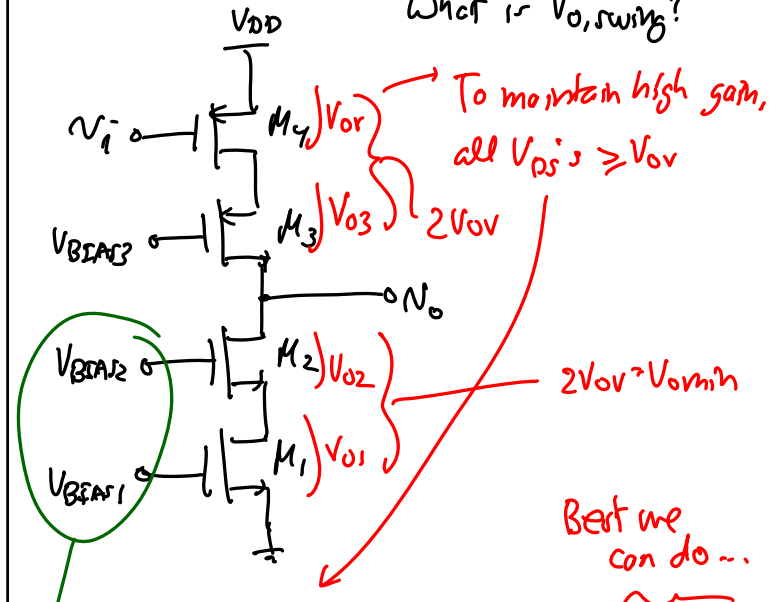 What is Vo,swing?
VDD
To maintain high gain,
all VDS's ≥ Vov
Vi
M4
Vov
VBIAS3
M3
Vo3
2Vov
Vo
VBIAS2
M2
Vo2
2Vov = Vomin
VBIAS1
M1
Vo1
Best we
can do...